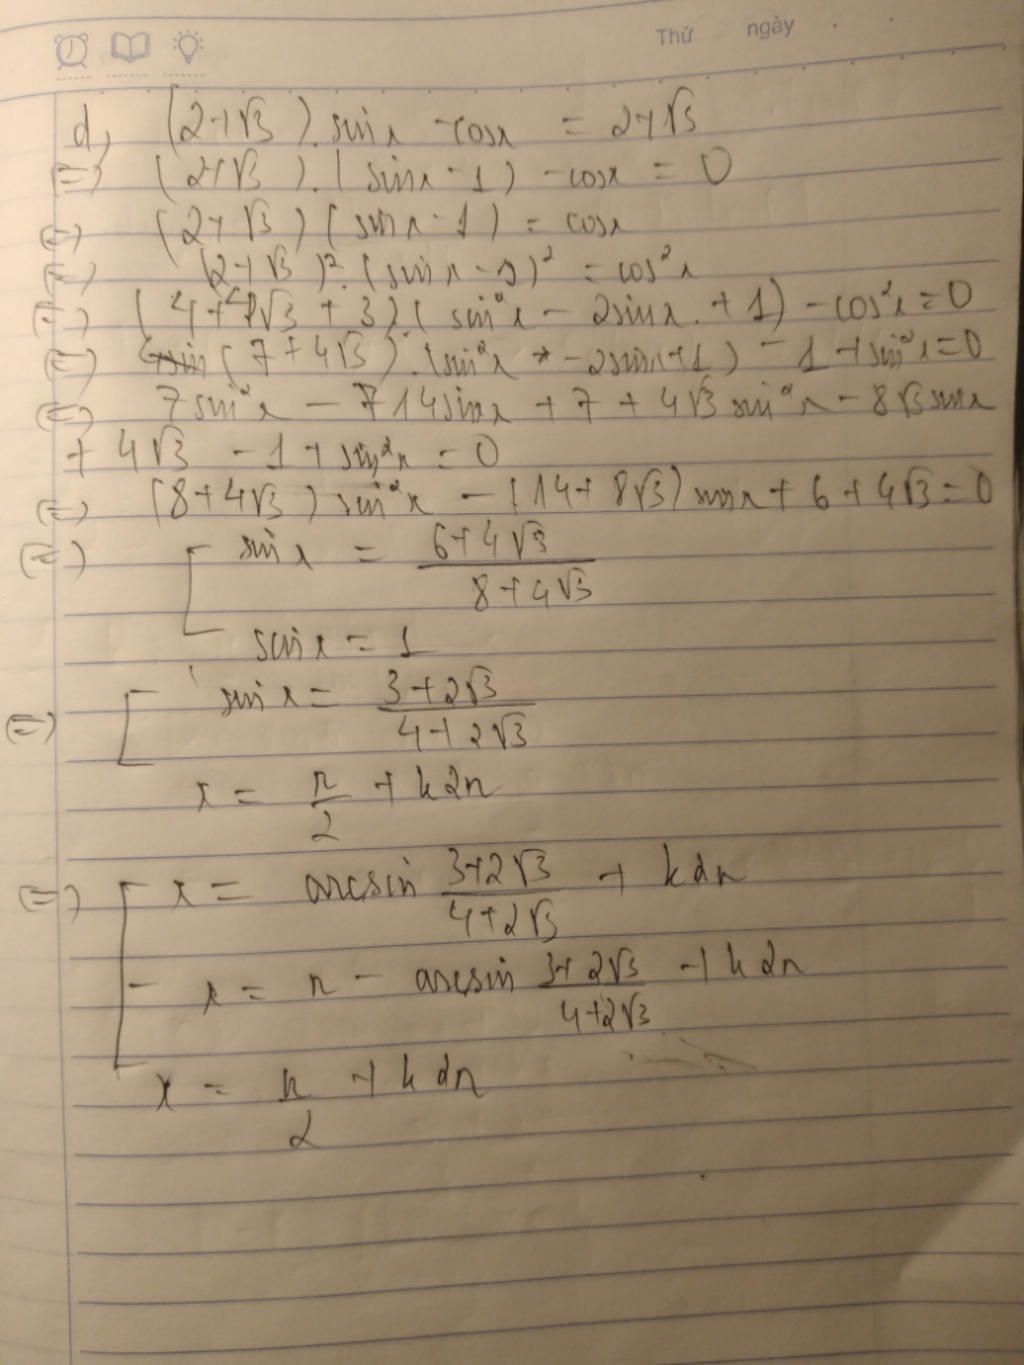 Thứ ngày
d, (2+√3).sinx - cosx = 2+√3
(=) (2+√3).(sinx - 1) - cosx = 0
(=) (2+√3)(sinx - 1) = cosx
(=) (2+√3)².(sinx - 1)² = cos²x
(=) (4+4√3+3)(sin²x - 2sinx + 1) - cos²x = 0
(=) (7+4√3).(sin²x - 2sinx+1) - 1 + sin²x = 0
(=) 7sin²x - 14sinx + 7 + 4√3 sin²x - 8√3 sinx
+ 4√3 - 1 + sin²x = 0
(=) (8+4√3) sin²x - (14+8√3) sinx + 6 + 4√3 = 0
(=) [ sinx = (6+4√3)/(8+4√3)
sinx = 1
(=) [ sinx = (3+2√3)/(4+2√3)
x = π/2 + k2π
(=) [ x = arcsin (3+2√3)/(4+2√3) + k2π
- x = π - arcsin (3+2√3)/(4+2√3) + k2π
x = π/2 + k2π